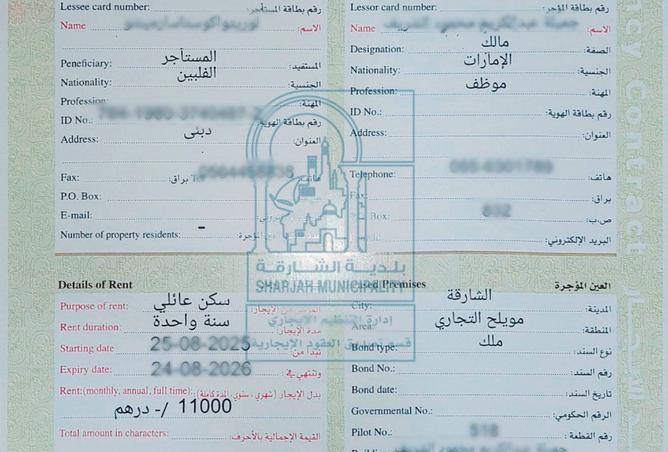 Lessee card number: رقم بطاقة المستأجر:
Name الاسم:
Peneficiary: المستأجر المستفيد:
Nationality: الفلبين الجنسية:
Profession: المهنة:
ID No.: رقم بطاقة الهوية:
Address: دبئى العنوان:
Fax: براق:
P.O. Box:
E-mail:
Number of property residents: -
Lessor card number: رقم بطاقة المؤجر:
Name الاسم:
Designation: مالك الصفة:
Nationality: الإمارات الجنسية:
Profession: موظف المهنة:
ID No.: رقم بطاقة الهوية:
Address: العنوان:
Telephone: هاتف:
Fax: براق:
Box: ص.ب:
البريد الإلكتروني:
بلدية الشارقة
SHARJAH MUNICIPALITY
إدارة التنظيم الإيجاري
قسم تصديق العقود الإيجارية
Details of Rent
Purpose of rent: سكن عائلي
Rent duration: سنة واحدة مدة الإيجار:
Starting date 25-08-2025 تبدأ من:
Expiry date: 24-08-2026 وتنتهي في:
Rent:(monthly, annual, full time): بدل الإيجار (شهري، سنوي، المدة كاملة):
11000 /- درهم
Total amount in characters: القيمة الإجمالية بالأحرف:
Premises العين المؤجرة
City: الشارقة المدينة:
Area: مويلح التجاري المنطقة:
Bond type: ملك نوع السند:
Bond No.: رقم السند:
Bond date: تاريخ السند:
Governmental No.: الرقم الحكومي:
Pilot No.: رقم القطعة:
ncy Contract